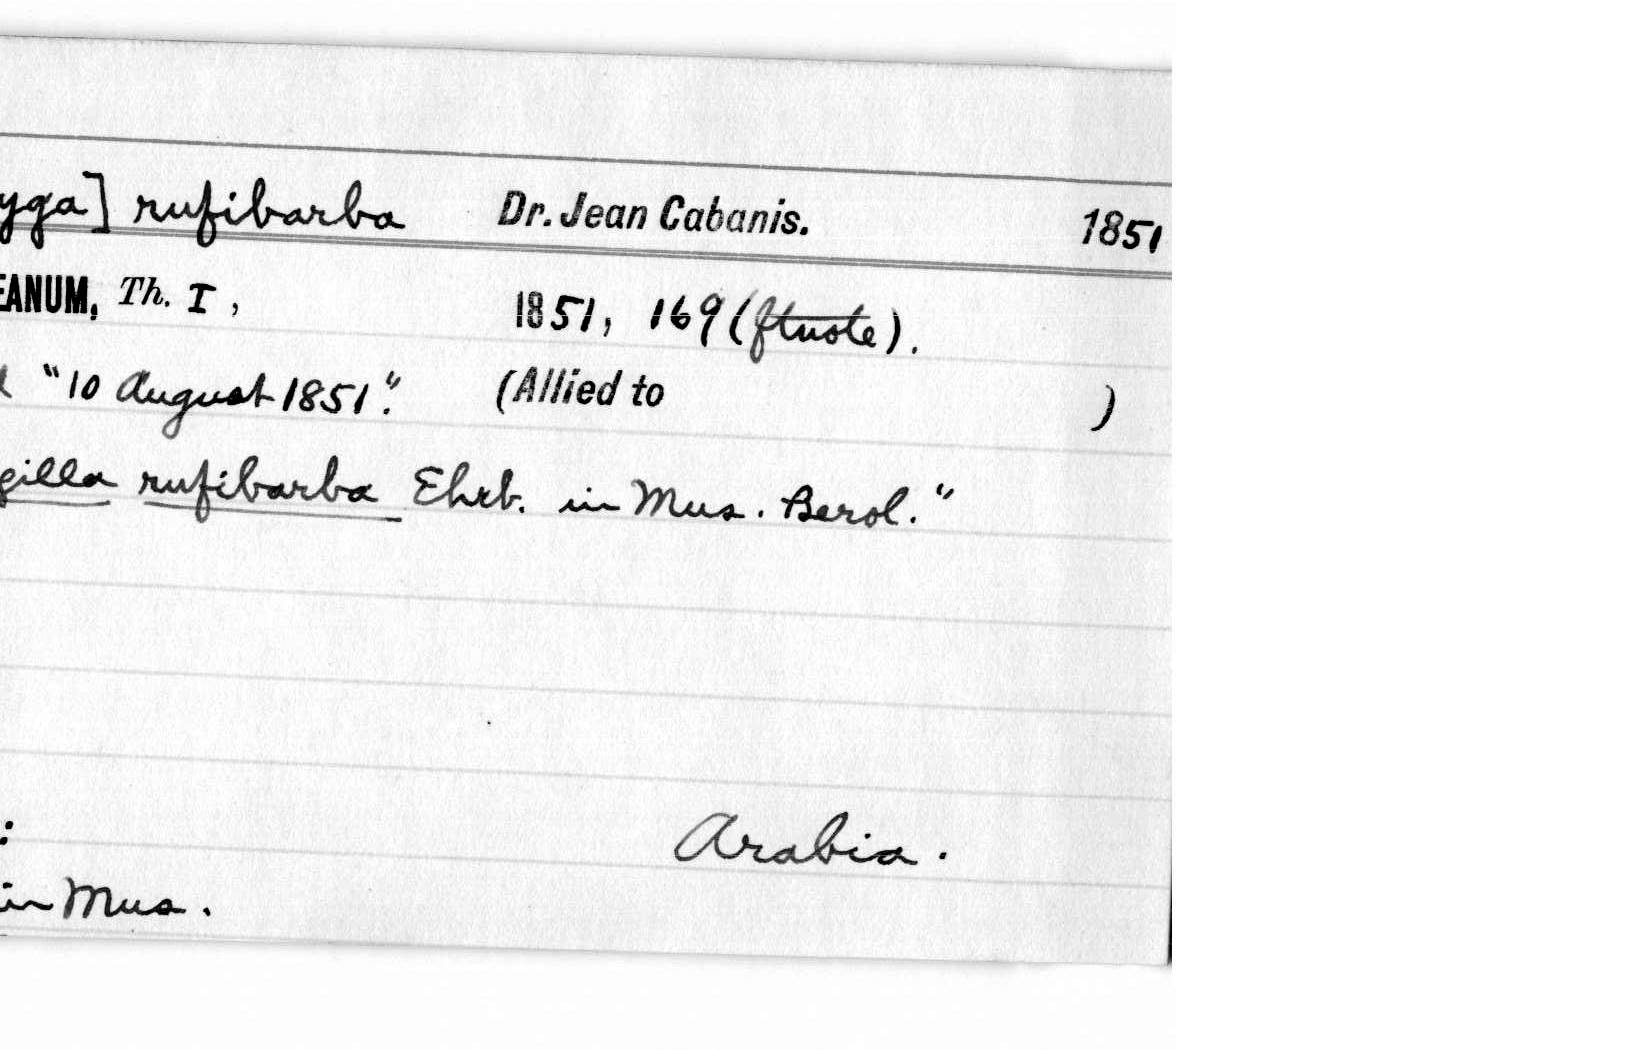 yga] rufibarba Dr. Jean Cabanis. 1851
EANUM, Th. I, 1851, 169 (ftnote).
"10 August 1851". (Allied to )
gilla rufibarba Ehrb. in Mus. Berol."
:
Arabia.
in Mus.